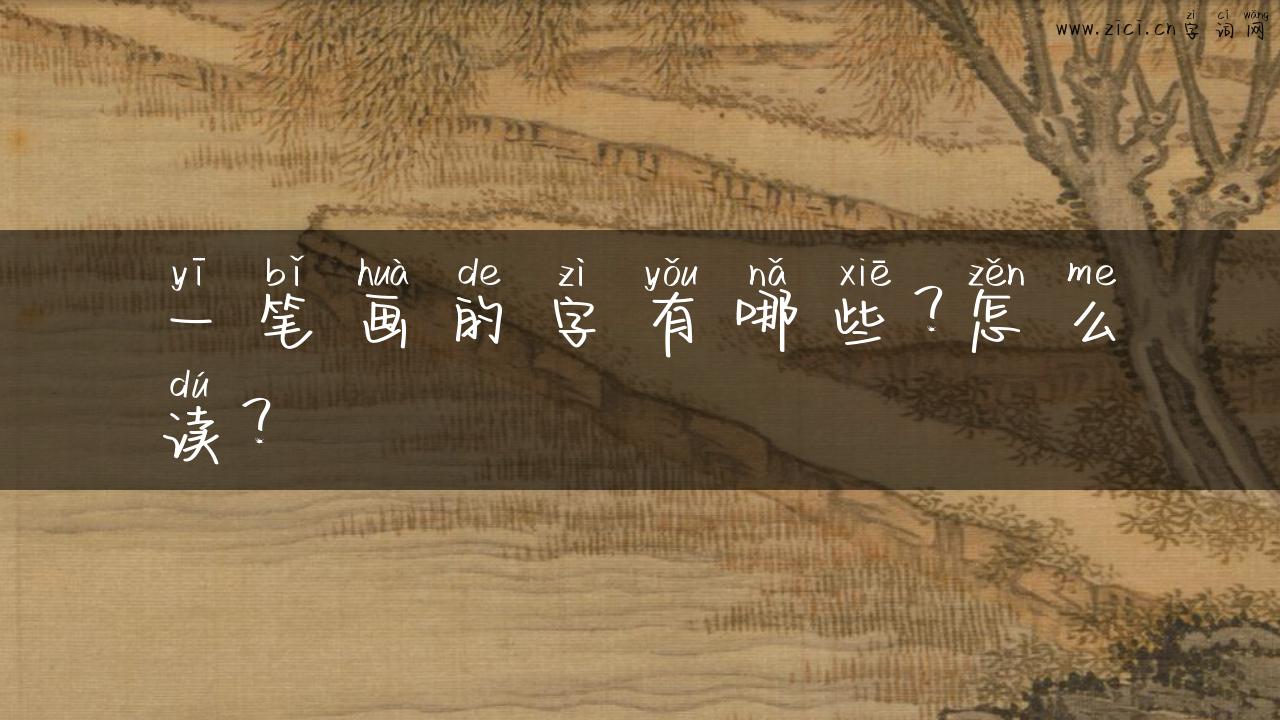 zì cí wǎng
www.zici.cn字词网
yī bǐ huà de zì yǒu nǎ xiē zěn me
一笔画的字有哪些?怎么
dú
读?